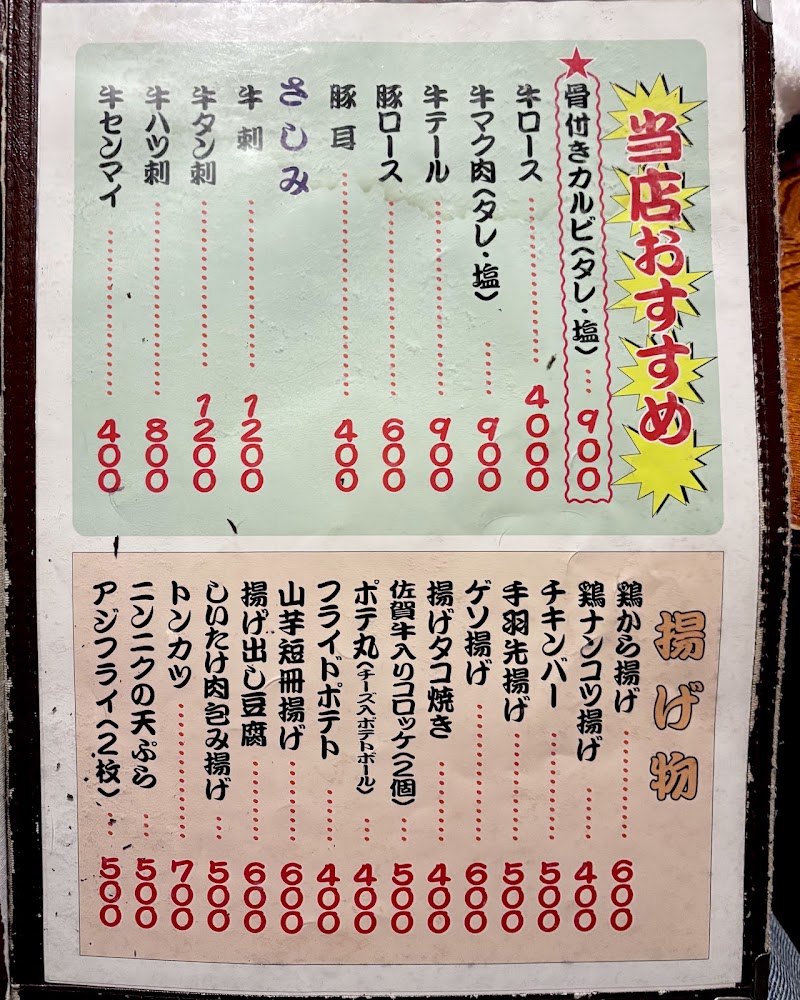 当店おすすめ
★骨付きカルビ(タレ・塩)……900
牛ロース……4000
牛マク肉(タレ・塩)……900
牛テール……900
豚ロース……600
豚耳……400
さしみ
牛刺……1200
牛タン刺……1200
牛ハツ刺……800
牛センマイ……400
揚げ物
鶏から揚げ……600
鶏ナンコツ揚げ……400
チキンバー……500
手羽先揚げ……500
ゲソ揚げ……600
揚げタコ焼き……400
佐賀牛入りコロッケ(2個)……500
ポテ丸(チーズ入ポテトボール)……400
フライドポテト……400
山芋短冊揚げ……600
揚げ出し豆腐……600
しいたけ肉包み揚げ……500
トンカツ……700
ニンニクの天ぷら……500
アジフライ(2枚)……500